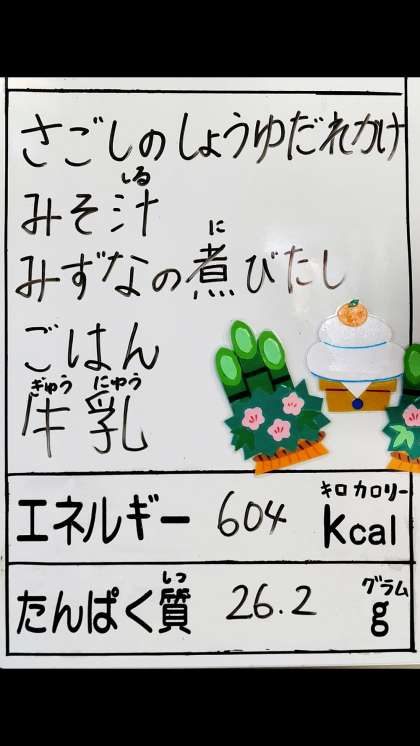 さごしのしょうゆだれかけ
しる
みそ汁
に
みずなの煮びたし
ごはん
ぎゅう にゅう
牛乳
キロカロリー
エネルギー 604 kcal
しつ グラム
たんぱく質 26.2 g